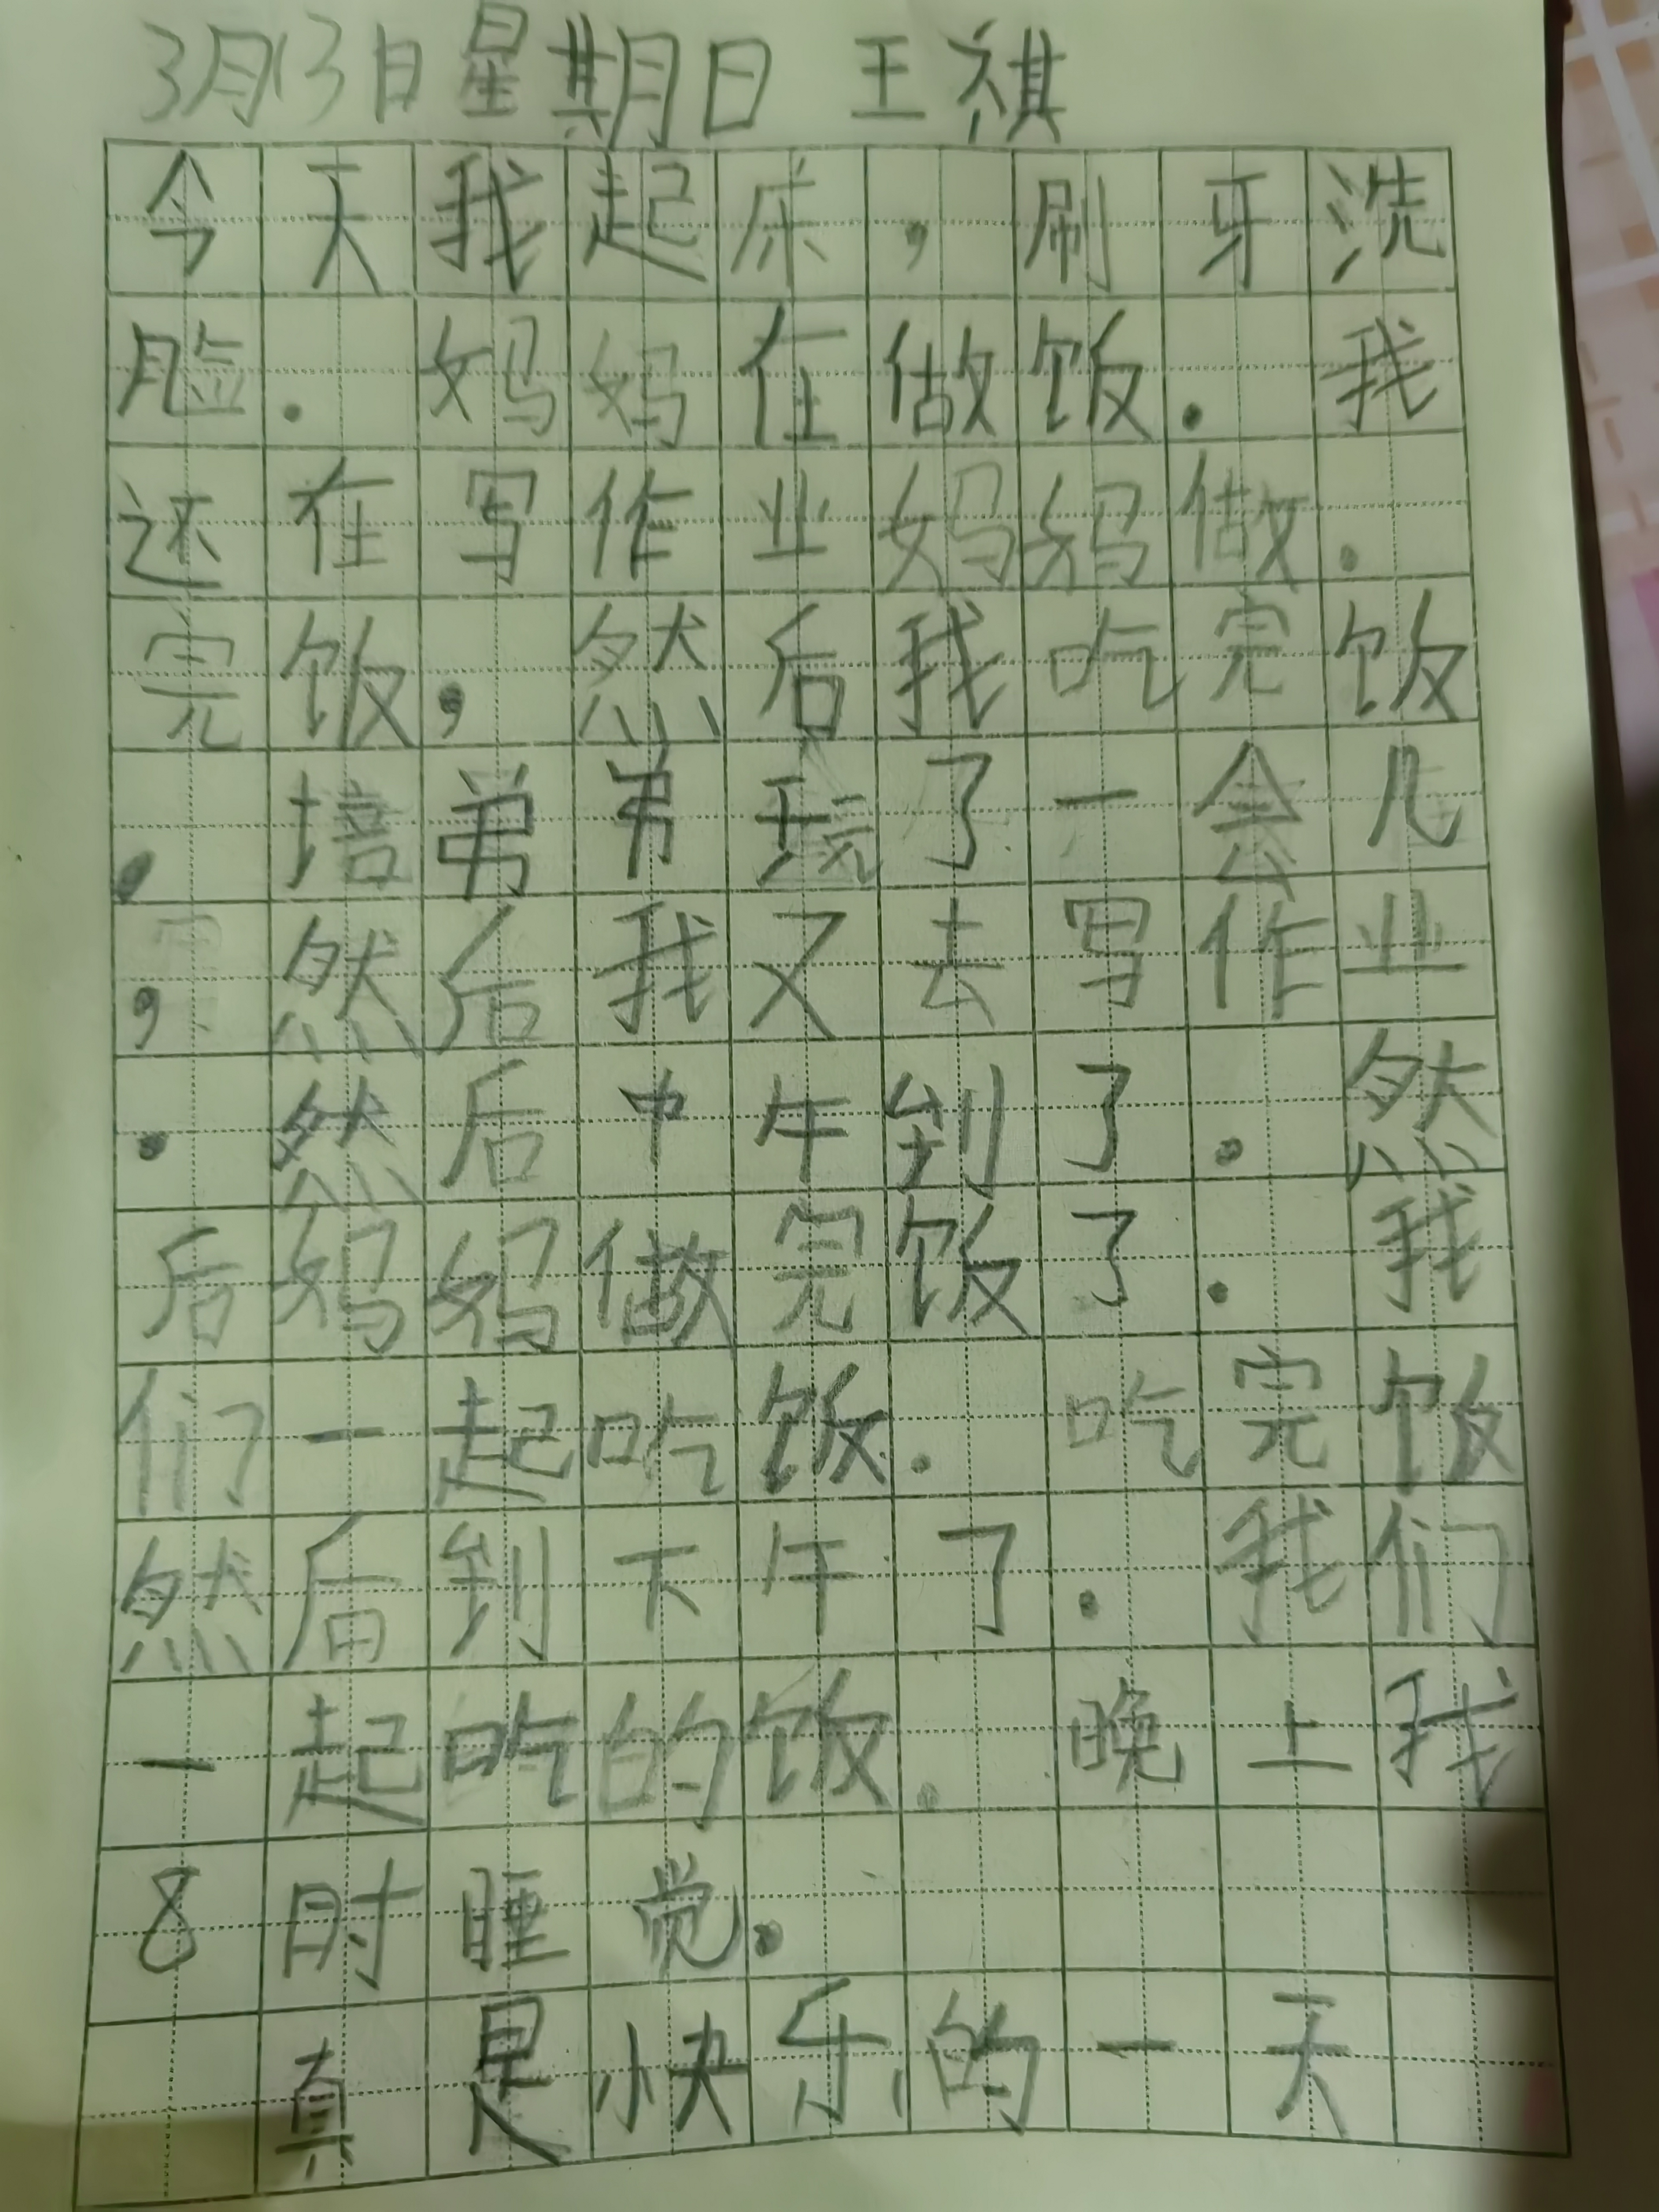 3月13日星期日 王祺
今天我起床,刷牙洗
脸.妈妈在做饭.我
还在写作业妈妈做.
完饭,然后我吃完饭
.培弟弟玩了一会儿
,然后我又去写作业
.然后中午到了.然
后妈妈做完饭了.我
们一起吃饭.吃完饭
然后到下午了.我们
一起吃的饭.晚上我
8时睡觉.
真是快乐的一天